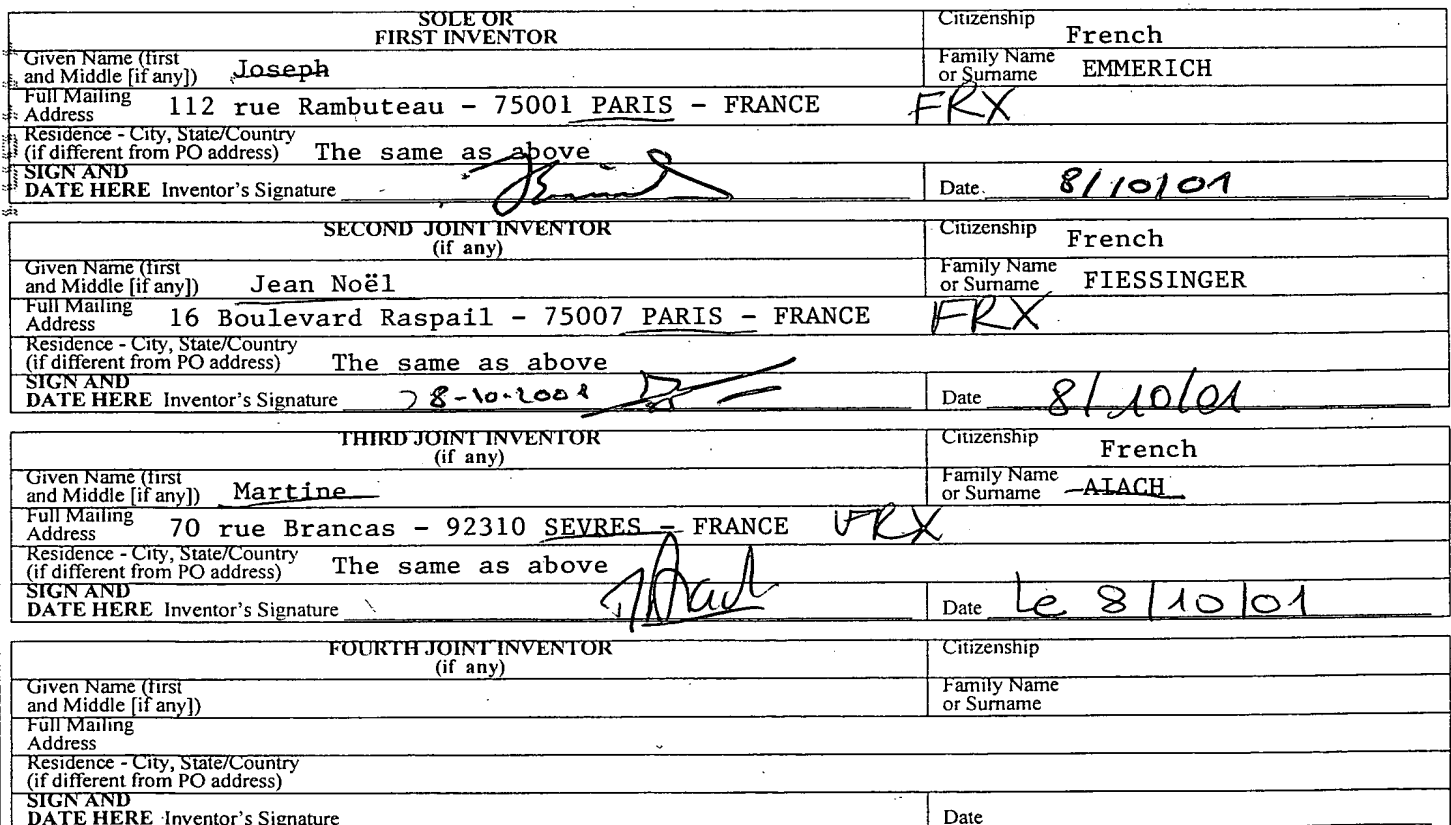 SOLE OR
FIRST INVENTOR
Citizenship French
Given Name (first
and Middle [if any]) Joseph
Family Name
or Surname EMMERICH
Full Mailing
Address 112 rue Rambuteau - 75001 PARIS - FRANCE FRX
Residence - City, State/Country
(if different from PO address) The same as above
SIGN AND
DATE HERE Inventor's Signature
Date 8/10/01
SECOND JOINT INVENTOR
(if any)
Citizenship French
Given Name (first
and Middle [if any]) Jean Noël
Family Name
or Surname FIESSINGER
Full Mailing
Address 16 Boulevard Raspail - 75007 PARIS - FRANCE FRX
Residence - City, State/Country
(if different from PO address) The same as above
SIGN AND
DATE HERE Inventor's Signature 8-10-2001
Date 8/10/01
THIRD JOINT INVENTOR
(if any)
Citizenship French
Given Name (first
and Middle [if any]) Martine
Family Name
or Surname AIACH
Full Mailing
Address 70 rue Brancas - 92310 SEVRES - FRANCE FRX
Residence - City, State/Country
(if different from PO address) The same as above
SIGN AND
DATE HERE Inventor's Signature
Date Le 8/10/01
FOURTH JOINT INVENTOR
(if any)
Citizenship
Given Name (first
and Middle [if any])
Family Name
or Surname
Full Mailing
Address
Residence - City, State/Country
(if different from PO address)
SIGN AND
DATE HERE Inventor's Signature
Date